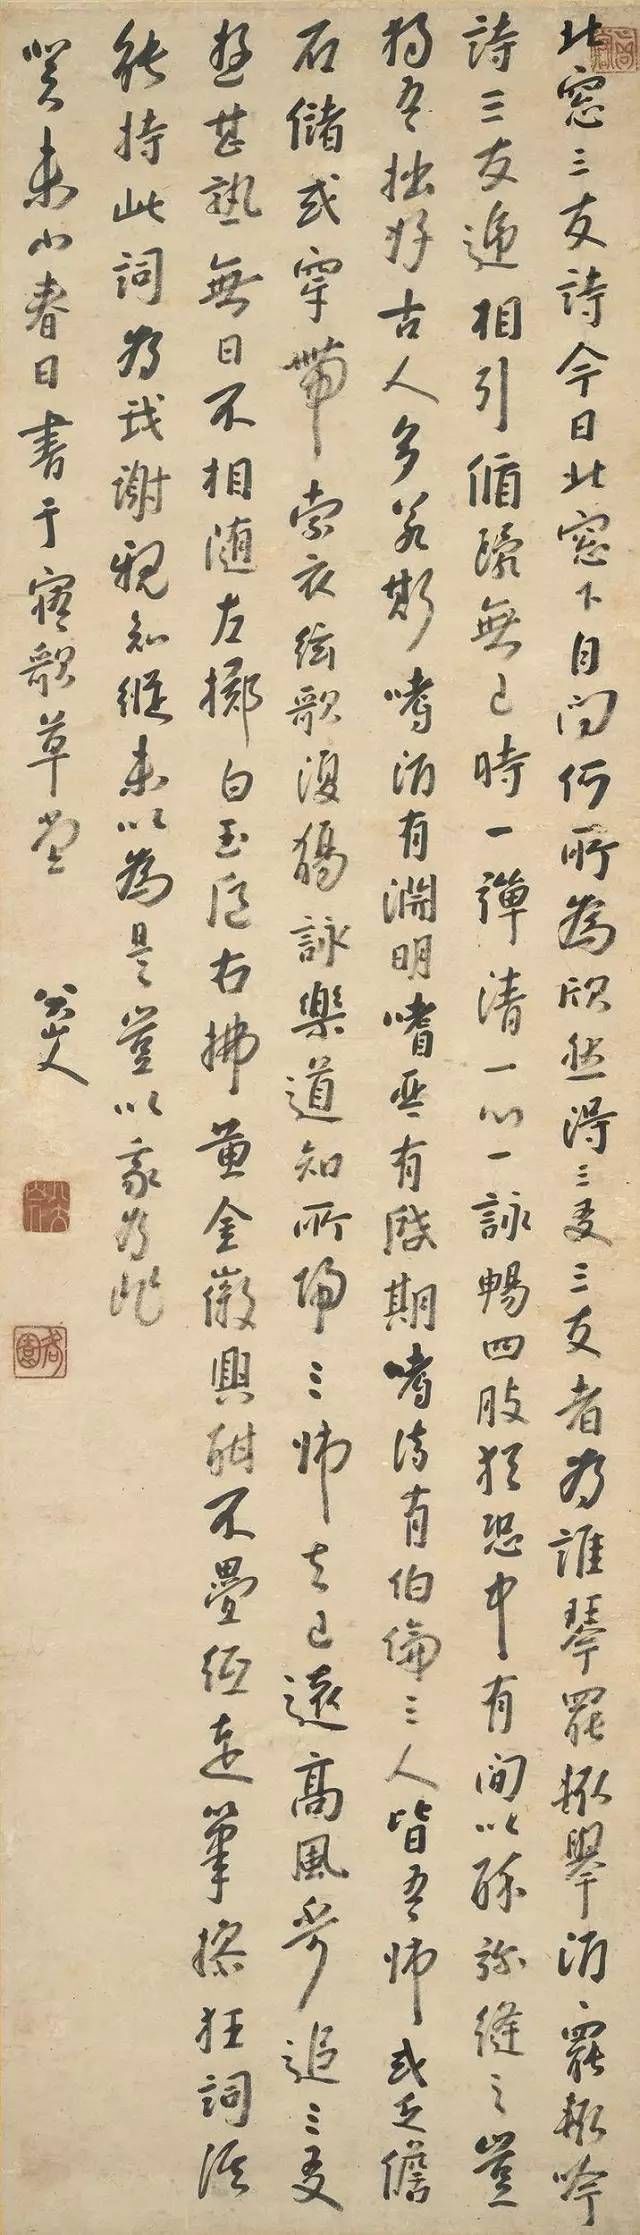 北窓三友詩今日北窓下自問何所為欣然得三友三友者為誰琴罷輒舉酒酒罷輒吟
詩三友遞相引循環無已時一彈清一心一詠暢四肢猶恐中有間以酔弥縫之豈
獨吾拙好古人多若斯嗜酒有淵明嗜琴有啓期嗜詩有伯倫三人皆吾師或乏儋
石儲或穿帶索衣絃歌復觴詠樂道知所歸三師去已遠高風不可追三友
遊甚熟無日不相随左擲白玉卮右拂黄金徽興酣不疊紙走筆操狂詞誰
能持此詞為我謝親知縱未以為是豈以我為非
癸未小春日書于寤歌草堂 八大山人